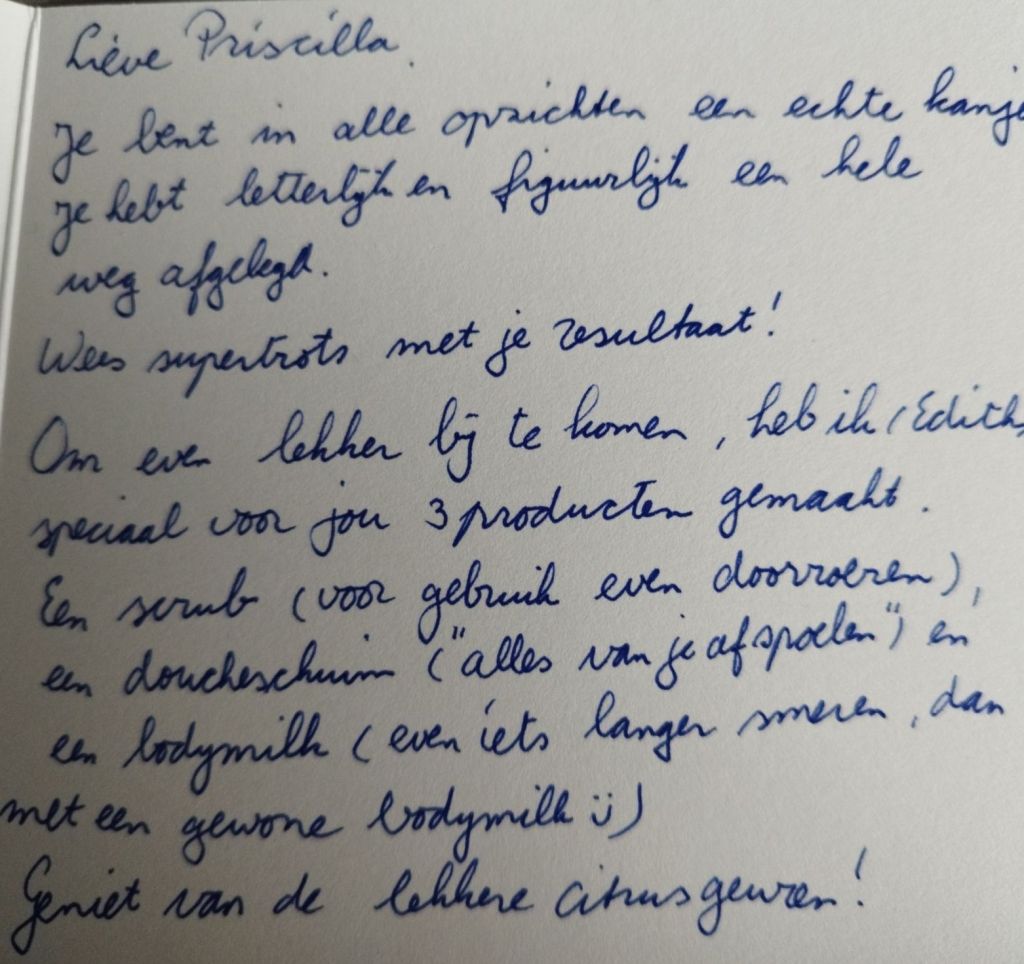 Lieve Priscilla,
Je bent in alle opzichten een echte kanje
Je hebt letterlijk en figuurlijk een hele
weg afgelegd.
Wees supertrots met je resultaat!
Om even lekker bij te komen, heb ik (Edith)
speciaal voor jou 3 producten gemaakt.
Een scrub (voor gebruik even doorroeren),
een doucheschuim ("alles van je afspoelen") en
een bodymilk (even iets langer smeren, dan
met een gewone bodymilk ü)
Geniet van de lekkere citrusgeuren!